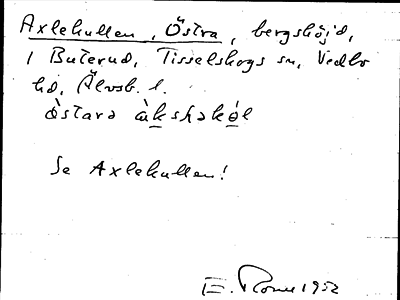 Axlekullen, Östra, bergshöjd,
i Buterud, Tisselskogs sn, Vedbo
hd, Älvsb. l.
östarə àkshəkól
Se Axlekullen!
E. 1952